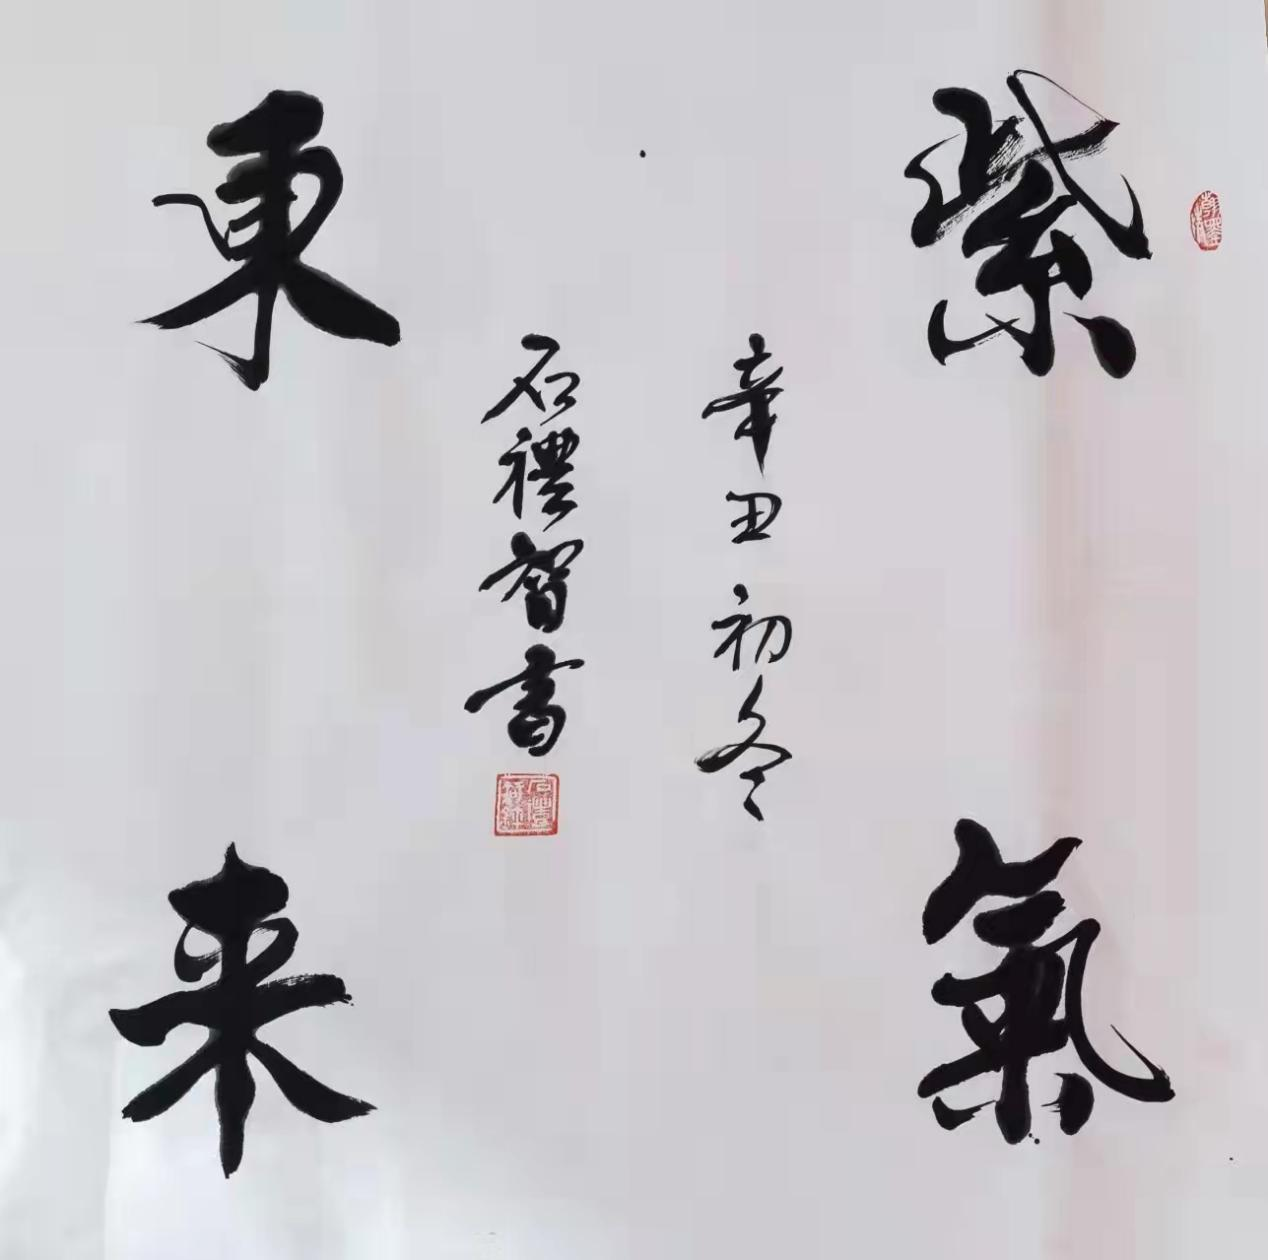 紫氣
東来
辛丑初冬
石禮智書